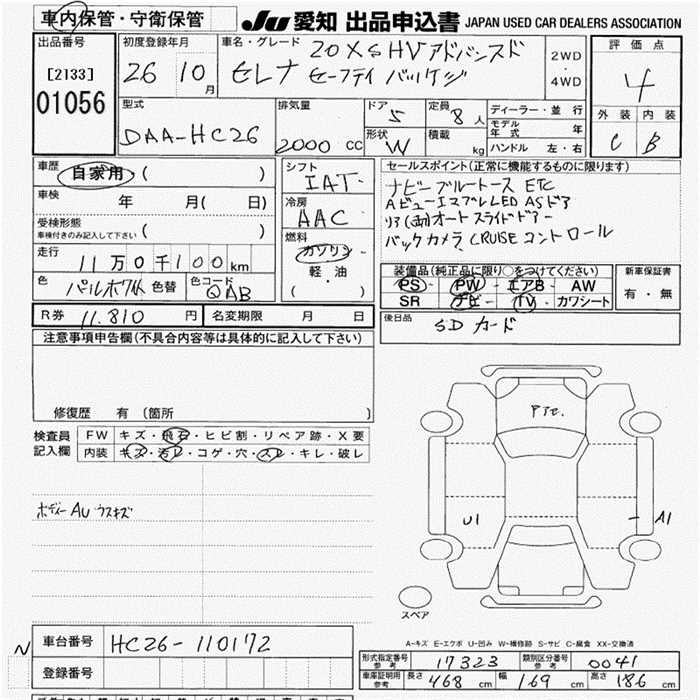 車内保管・守衛保管
JU 愛知 出品申込書 JAPAN USED CAR DEALERS ASSOCIATION
出品番号
[2133]
01056
初度登録年月
26 10月
車名・グレード
20XSHVアドバンスド
セレナ セーフティ パッケジ
2WD
・
4WD
評価点
4
外装 内装
C B
型式
DAA-HC26
排気量
2000 cc
ドア 5
形状 W
定員 8 人
積載 kg
ディーラー・並行
モデル年式 年
ハンドル 左・右
車歴
自家用 ( )
車検 年 月( 日)
受検形態
車検付きのみ記入して下さい ( )
走行
11万0千100km
色 パルホワイト 色替 色コード QAB
シフト
IAT
冷房
AAC
燃料
ガソリン
軽・油
( )
セールスポイント(正常に機能するものに限ります)
ナビ ブルートース ETC
AビューエマブレLED ASドア
リア(両)オートスライドドアー
バックカメラ CRUISEコントロール
装備品(純正品に限り○をつけてください)
PS PW エアB・AW
SR ナビ・TV・カワシート
新車保証書
有・無
後日品
SDカード
R券 11.810 円 名変期限 月 日
注意事項申告欄(不具合内容等は具体的に記入して下さい)
修復歴 有(箇所 )
検査員記入欄
FW キズ・飛石・ヒビ割・リペア跡・X要
内装 キズ・汚レ・コゲ・穴・スレ・キレ・破レ
ボディーAU ウスキズ
U1
A1
スペア
A-キズ E-エクボ U-凹み W-補修跡 S-サビ C-腐食 XX-交換済
N
車台番号 HC26-110172
登録番号
形式指定番号 参考 17323 類別区分番号 参考 0041
車庫証明用 参考 長さ 468 cm 幅 169 cm 高さ 186 cm